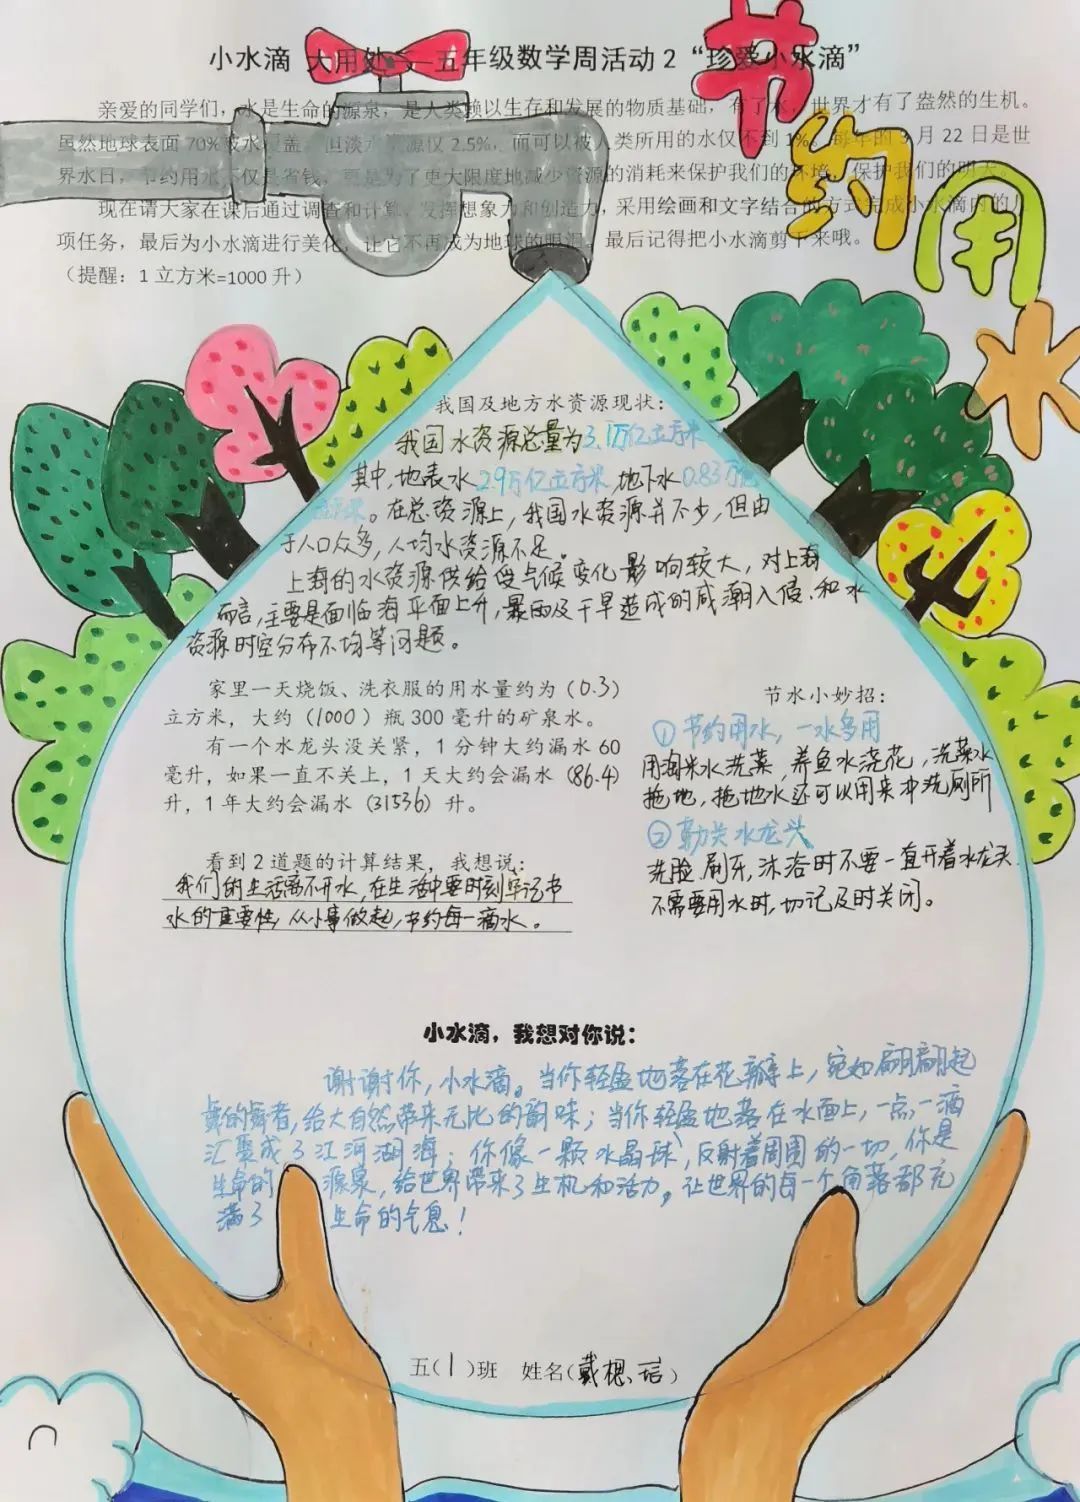 小水滴 大用处——五年级数学周活动2“珍爱小水滴”
节约用水
亲爱的同学们，水是生命的源泉，是人类赖以生存和发展的物质基础，有了水，世界才有了盎然的生机。
虽然地球表面70%被水覆盖，但淡水资源仅2.5%，而可以被人类所用的水仅不到1%。每年的3月22日是世
界水日，节约用水不仅是省钱，更是为了更大限度地减少资源的消耗来保护我们的环境，保护我们的明天。
现在请大家在课后通过调查和计算，发挥想象力和创造力，采用绘画和文字结合的方式完成小水滴内的几
项任务，最后为小水滴进行美化，让它不再成为地球的眼泪。最后记得把小水滴剪下来哦。
（提醒：1立方米=1000升）
我国及地方水资源现状：
我国水资源总量为3.1万亿立方米
其中，地表水2.9万亿立方米，地下水0.83万亿
立方米。在总资源上，我国水资源并不少，但由
于人口众多，人均水资源不足。
上海的水资源供给受气候变化影响较大，对上海
而言，主要是面临海平面上升，暴雨及干旱造成的咸潮入侵、和水
资源时空分布不均等问题。
家里一天烧饭、洗衣服的用水量约为（0.3）
立方米，大约（1000）瓶300毫升的矿泉水。
有一个水龙头没关紧，1分钟大约漏水60
毫升，如果一直不关上，1天大约会漏水（86.4）
升，1年大约会漏水（31536）升。
看到2道题的计算结果，我想说：
我们的生活离不开水，在生活中要时刻牢记节
水的重要性，从小事做起，节约每一滴水。
节水小妙招：
①节约用水，一水多用
用淘米水洗菜，养鱼水浇花，洗菜水
拖地，拖地水还可以用来冲洗厕所
②勤关水龙头
洗脸、刷牙，沐浴时不要一直开着水龙头
不需要用水时，切记及时关闭。
小水滴，我想对你说：
谢谢你，小水滴。当你轻盈地落在花瓣上，宛如翩翩起
舞的舞者，给大自然带来无比的韵味；当你轻盈地落在水面上，一点一滴
汇聚成了江河湖海；你像一颗水晶球，反射着周围的一切，你是
生命的源泉，给世界带来了生机和活力，让世界的每一个角落都充
满了生命的气息！
五（1）班 姓名（戴